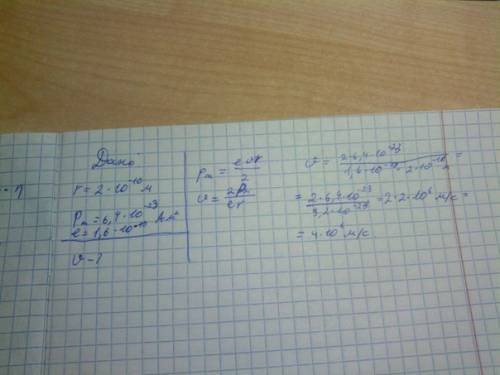 Дано
r = 2 · 10⁻¹⁰ м
Pₘ = 6,4 · 10⁻²³ А м²
e = 1,6 · 10⁻¹⁹
v - ?
pₘ = evr/2
v = 2Pₘ/er
v = 2 · 6,4 · 10⁻²³ / 1,6 · 10⁻¹⁹ · 2 · 10⁻¹⁰ =
= 2 · 6,4 · 10⁻²³ / 3,2 · 10⁻²⁹ = 2 · 2 · 10⁶ м/с =
= 4 · 10⁶ м/с